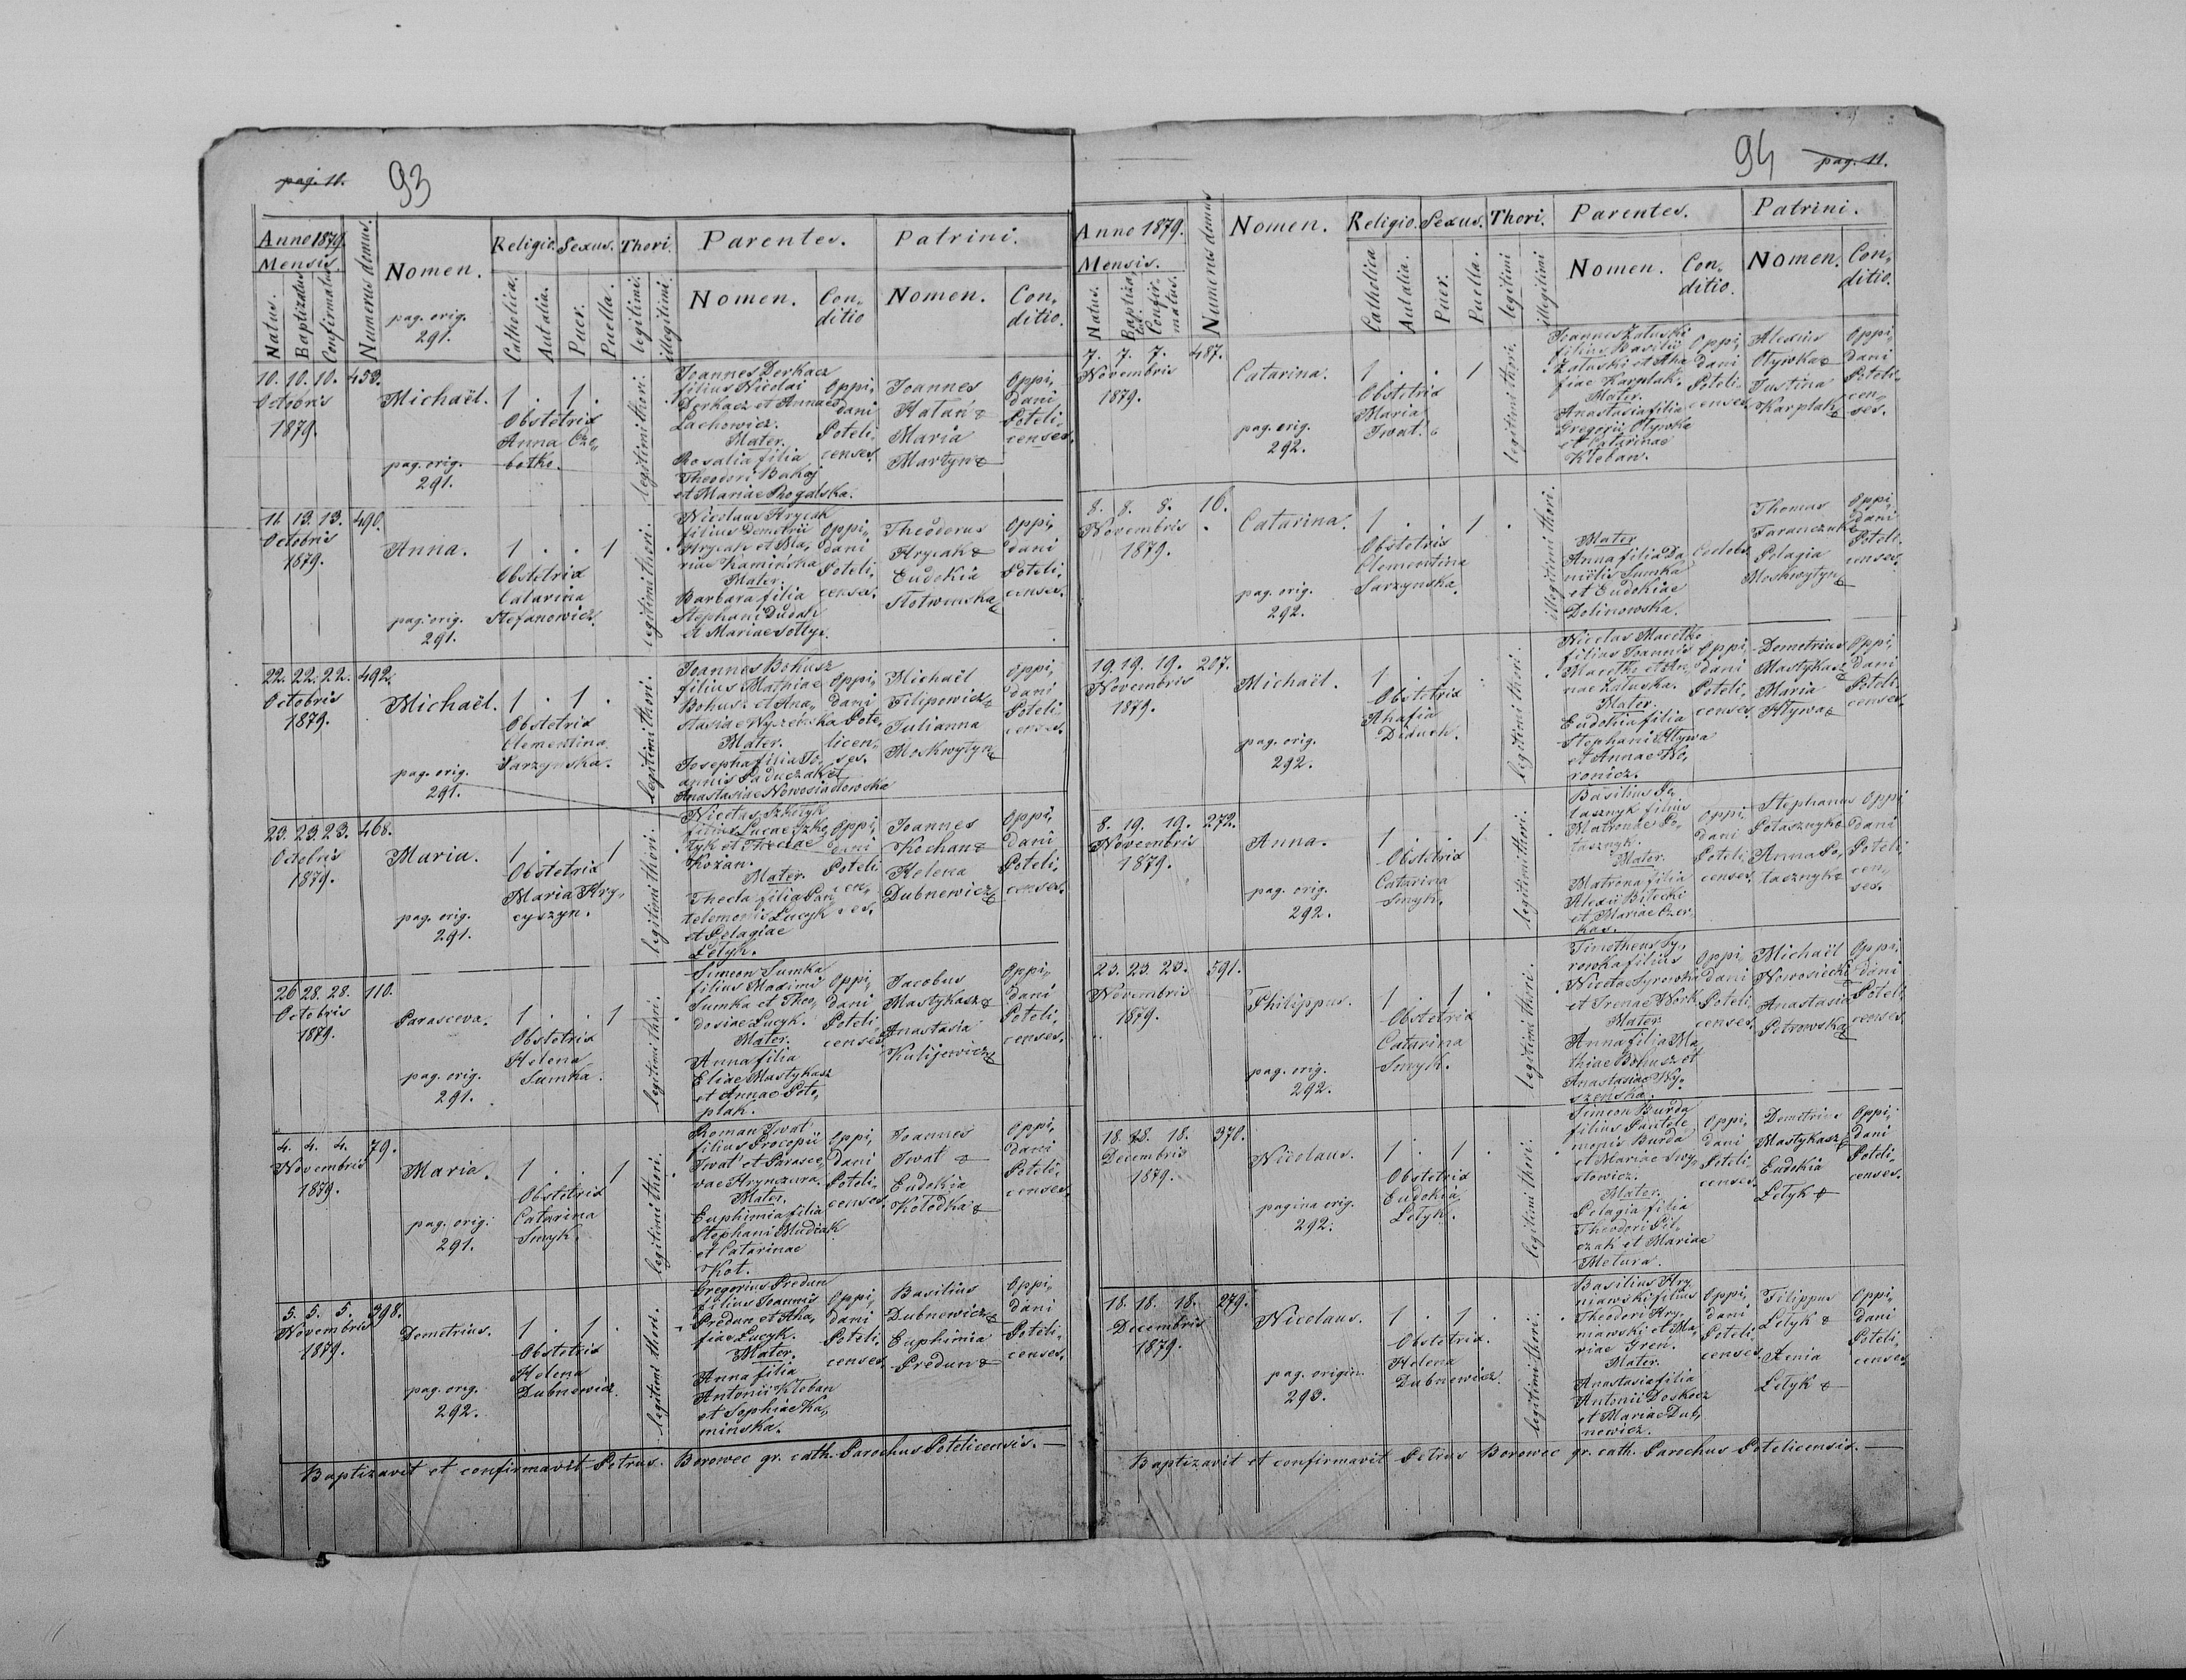 pag. 11.
93
Anno 1879.
Mensis.
Natus.
Baptizatus
Confirmatus
Numerus domus.
Nomen.
pag. orig.
291.
Religio.
Catholica.
Aut alia.
Sexus.
Puer.
Puella.
Thori.
legitimi.
illegitimi.
Parentes.
Nomen.
Con,,
ditio
Patrini.
Nomen.
Con,,
ditio.
10. 10. 10. 453.
Octobris
1879.
Michaël.
pag. orig.
291.
1 . 1 .
Obstetrix
Anna Czo,,
botko.
legitimi thori.
Joannes Derkacz
filius Nicolai
Derkacz et Annae
Lachowicz.
Mater.
Rosalia filia
Theodori Bakaj
et Mariae Rogalska.
Oppi,,
dani
Poteli,,
censes.
Joannes
Hatan &
Maria
Martyn &
Oppi,,
dani
Poteli,,
censes.
11. 13. 13. 490.
Octobris
1879.
Anna.
pag. orig.
291.
1 . . 1
Obstetrix
Catarina
Stefanowicz.
legitimi thori.
Nicolaus Hrycak
filius Demetrii
Hrycak et Ma,,
riae Kamińska
Mater.
Barbara filia
Stephani Dudah
et Mariae Soltys.
Oppi,,
dani
Poteli,,
censes.
Theodorus
Hrycak &
Eudokia
Slotwinska &
Oppi,,
dani
Poteli,,
censes.
22. 22. 22. 492.
Octobris
1879.
Michaël.
pag. orig.
291.
1 . 1 .
Obstetrix
Clementina
Sarzynska.
legitimi thori.
Joannes Bohusz
filius Mathiae
Bohusz et Ana,,
stasiae Wyszeńska
Mater.
Josepha filia Jo,,
annis Paduczak et
Anastasiae Nowosiadlowska
Oppi,,
dani
Pote,,
licen,,
ses.
Michaël
Filipowicz &
Julianna
Moskwytyn &
Oppi,,
dani
Poteli,,
censes.
23. 23. 23. 468.
Octobris
1879.
Maria.
pag. orig.
291.
1 . . 1
Obstetrix
Maria Hry,,
cyszyn.
legitimi thori.
Nicetas Szkołyk
filius Lucae Szko,,
łyk et Theclae
Kożan.
Mater.
Thecla filia Pan
telemonis Lucyk
et Pelagiae
Letyk.
Oppi,,
dani
Poteli,,
cen,,
ses.
Joannes
Kochan &
Helena
Dubnewicz &
Oppi,,
dani
Poteli,,
censes.
26 28. 28. 110.
Octobris
1879.
Parasceva.
pag. orig.
291.
1 . . 1
Obstetrix
Helena
Sumka.
legitimi thori.
Simeon Sumka
filius Maximi
Sumka et Theo,,
dosiae Lucyk.
Mater.
Anna filia
Eliae Mastykasz
et Annae Poto,,
plak.
Oppi,,
dani
Poteli,,
censes.
Jacobus
Mastykasz &
Anastasia
Kulijewicz &
Oppi,,
dani
Poteli,,
censes.
4. 4. 4. 79.
Novembris
1879.
Maria.
pag. orig.
291.
1 . . 1
Obstetrix
Catarina
Smyk.
legitimi thori.
Roman Iwat
filius Procopii
Iwat et Parasce,,
vae Hrynczura.
Mater.
Euphimia filia
Stephani Mudrak
et Catarinae
Kot.
Oppi,,
dani
Poteli,,
censes.
Joannes
Iwat &
Eudokia
Kołodka &
Oppi,,
dani
Poteli,,
censes.
5. 5. 5. 398.
Novembris
1879.
Demetrius.
pag. orig.
292.
1 . 1 .
Obstetrix
Helena
Dubnewicz.
legitimi thori.
Gregorius Predun
filius Joannis
Predun et Aha,,
fiae Lucyk.
Mater.
Anna filia
Antonii Kleban
et Sophiae Ka,,
mińska.
Oppi,,
dani
Poteli,,
censes.
Basilius
Dubnewicz &
Euphimia
Predun &
Oppi,,
dani
Poteli,,
censes.
Baptizavit et confirmavit Petrus Borowec gr. cath. Parochus Potelicensis.
94
pag. 11.
Anno 1879.
Mensis.
Natus.
Baptiza
tus.
Confir,,
matus.
Numerus domus
Nomen.
Religio.
Catholica
Aut alia.
Sexus.
Puer.
Puella.
Thori.
legitimi
illegitimi
Parentes.
Nomen.
Con,,
ditio.
Patrini.
Nomen.
Con,,
ditio.
7. 7. 7. 487.
Novembris
1879.
Catarina.
pag. orig.
292.
1 . . 1
Obstetrix
Maria
Iwat.
legitimi thori.
Joannes Załuski
filius Basilii
Załuski et Aha
fiae Karplak.
Mater.
Anastasia filia
Gregorii Otyroka
et Catarinae
Kleban.
Oppi,,
dani
Poteli,,
censes.
Alexius
Otyroka &
Justina
Karplak &
Oppi,,
dani
Poteli,,
cen,,
ses.
8. 8. 8. 16.
Novembris
1879.
Catarina.
pag. orig.
292.
1 . . 1 .
Obstetrix
Clementina
Sarzynska.
illegitimi thori.
Mater
Anna filia Da
niëlis Sumka
et Eudokiae
Dolinowska.
Coelebs
Thomas
Taranczuk &
Pelagia
Moskwytyn &
Oppi,,
dani
Poteli,,
censes.
19. 19. 19. 207.
Novembris
1879.
Michaël.
pag. orig.
292.
1 . 1 .
Obstetrix
Ahafia
Diduch.
legitimi thori.
Nicetas Macetko
filius Joannis
Macetko et An,,
nae Załuska.
Mater.
Eudokia filia
Stephani Hływa
et Annae Wo,,
ronicz.
Oppi,,
dani
Poteli,,
censes.
Demetrius
Mastykasz &
Maria
Hływa &
Oppi,,
dani
Poteli,,
censes.
8. 19. 19. 272.
Novembris
1879.
Anna.
pag. orig.
292.
1 . . 1
Obstetrix
Catarina
Smyk.
legitimi thori.
Basilius Po,,
tasznyk filius
Matronae Po,,
tasznyk.
Mater.
Matrona filia
Alexii Bilecki
et Mariae Czer,,
kas.
Oppi,,
dani
Poteli,,
censes.
Stephanus
Potasznyk &
Anna Po,,
tasznyk &
Oppi,,
dani
Poteli,,
cen,,
ses.
23. 23. 23. 591.
Novembris
1879.
Philippus.
pag. orig.
292.
1 . 1 .
Obstetrix
Catarina
Smyk.
legitimi thori.
Timotheus Sy,,
rowka filius
Nicetae Syrowka
et Irenae Work.
Mater.
Anna filia Ma
thiae Bohusz et
Anastasiae Wy,,
szenska.
Oppi,,
dani
Poteli,,
censes.
Michaël
Norosiecki
Anastasia
Petrowska &
Oppi,,
dani
Poteli,,
censes.
18. 18. 18. 370.
Decembris
1879.
Nicolaus.
pagina orig.
292.
1 . 1 .
Obstetrix
Eudokia
Letyk.
legitimi thori.
Simeon Burda
filius Pantele,,
monis Burda
et Mariae Swy,,
stowicz.
Mater.
Pelagia filia
Theodori Pel,,
czak et Mariae
Metura.
Oppi,,
dani
Poteli,,
censes.
Demetrius
Mastykasz &
Eudokia
Letyk &
Oppi,,
dani
Poteli,,
censes.
18. 18. 18. 279.
Decembris
1879.
Nicolaus.
pag. origin.
293.
1 . 1 .
Obstetrix.
Helena
Dubnewicz.
legitimi thori.
Basilius Hry,,
niawski filius
Theodori Hry,,
niawski et Ma,,
riae Greń.
Mater.
Anastasia filia
Antonii Doskocz
et Mariae Dub,,
newicz.
Oppi,,
dani
Poteli,,
censes.
Filippus
Letyk &
Xenia
Letyk &
Oppi,,
dani
Poteli,,
censes.
Baptizavit et confirmavit Petrus Borowec gr. cath. Parochus Potelicensis.